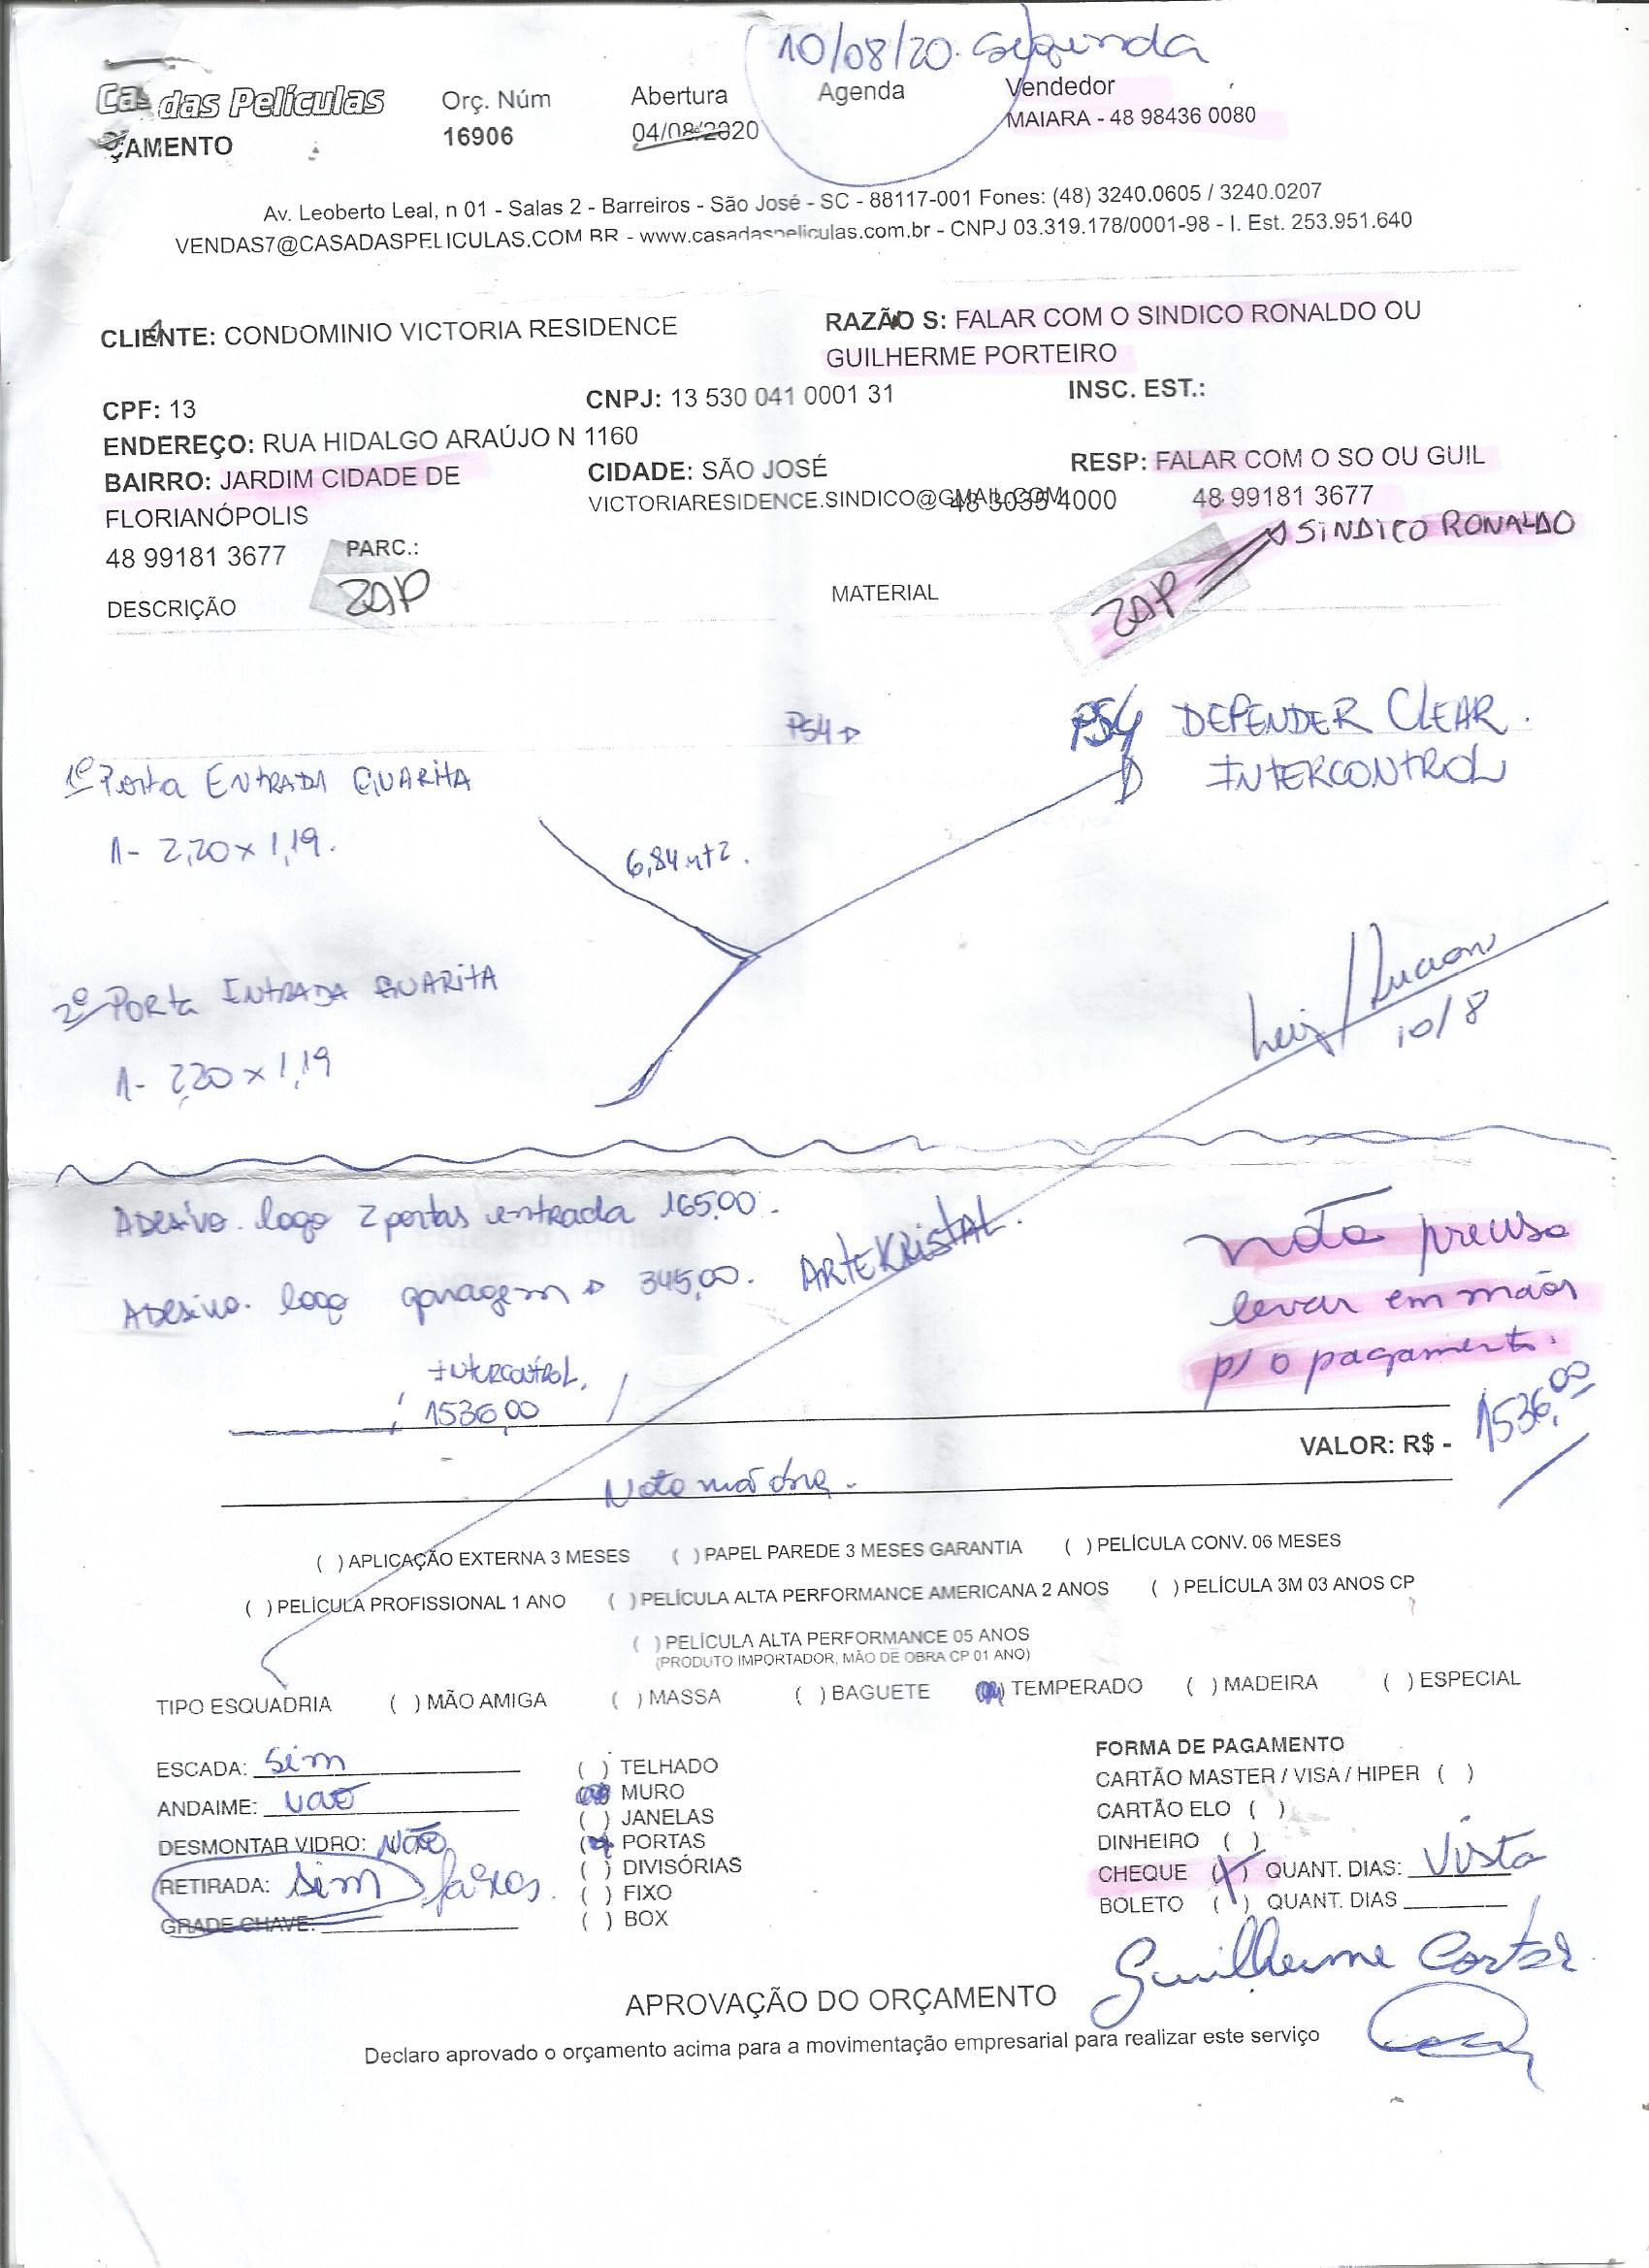 10/08/20. segunda
Casa das Películas
Orç. Núm Abertura Agenda Vendedor
ÇAMENTO 16906 04/08/2020 MAIARA - 48 98436 0080
Av. Leoberto Leal, n 01 - Salas 2 - Barreiros - São José - SC - 88117-001 Fones: (48) 3240.0605 / 3240.0207
VENDAS7@CASADASPELICULAS.COM BR - www.casadaspeliculas.com.br - CNPJ 03.319.178/0001-98 - I. Est. 253.951.640
CLIENTE: CONDOMINIO VICTORIA RESIDENCE RAZÃO S: FALAR COM O SINDICO RONALDO OU
GUILHERME PORTEIRO
CPF: 13 CNPJ: 13 530 041 0001 31 INSC. EST.:
ENDEREÇO: RUA HIDALGO ARAÚJO N 1160
BAIRRO: JARDIM CIDADE DE CIDADE: SÃO JOSÉ RESP: FALAR COM O SO OU GUIL
FLORIANÓPOLIS VICTORIARESIDENCE.SINDICO@GMAIL.COM 48 3035 4000 48 99181 3677
48 99181 3677 PARC.: SINDICO RONALDO
ZAP ZAP
DESCRIÇÃO MATERIAL
PS4 PS4 DEFENDER CLEAR.
1ª Porta ENTRADA GUARITA INTERCONTROL
1- 2,20 x 1,19. 6,84 mt2.
2ª PORTA ENTRADA GUARITA Luiz / Luciano
10/8
1- 2,20 x 1,19
ADESIVO. logo 2 portas entrada 165,00.
ADESIVO. logo garagem 345,00. ARTEKRISTAL.
não preciso
levar em mãos
p/ o pagamento.
INTERCONTROL.
1536,00
VALOR: R$ - 1536,00
Nota mão obra.
( ) APLICAÇÃO EXTERNA 3 MESES ( ) PAPEL PAREDE 3 MESES GARANTIA ( ) PELÍCULA CONV. 06 MESES
( ) PELÍCULA PROFISSIONAL 1 ANO ( ) PELÍCULA ALTA PERFORMANCE AMERICANA 2 ANOS ( ) PELÍCULA 3M 03 ANOS CP
( ) PELÍCULA ALTA PERFORMANCE 05 ANOS
(PRODUTO IMPORTADOR, MÃO DE OBRA CP 01 ANO)
TIPO ESQUADRIA ( ) MÃO AMIGA ( ) MASSA ( ) BAGUETE ( ) TEMPERADO ( ) MADEIRA ( ) ESPECIAL
ESCADA: Sim ( ) TELHADO FORMA DE PAGAMENTO
ANDAIME: não ( ) MURO CARTÃO MASTER / VISA / HIPER ( )
( ) JANELAS CARTÃO ELO ( )
DESMONTAR VIDRO: NÃO (x) PORTAS DINHEIRO ( )
RETIRADA: Sim faixas. ( ) DIVISÓRIAS CHEQUE (X) QUANT. DIAS: Vista
( ) FIXO BOLETO ( ) QUANT. DIAS
GRADE CHAVE: ( ) BOX
Guilherme
APROVAÇÃO DO ORÇAMENTO
Declaro aprovado o orçamento acima para a movimentação empresarial para realizar este serviço